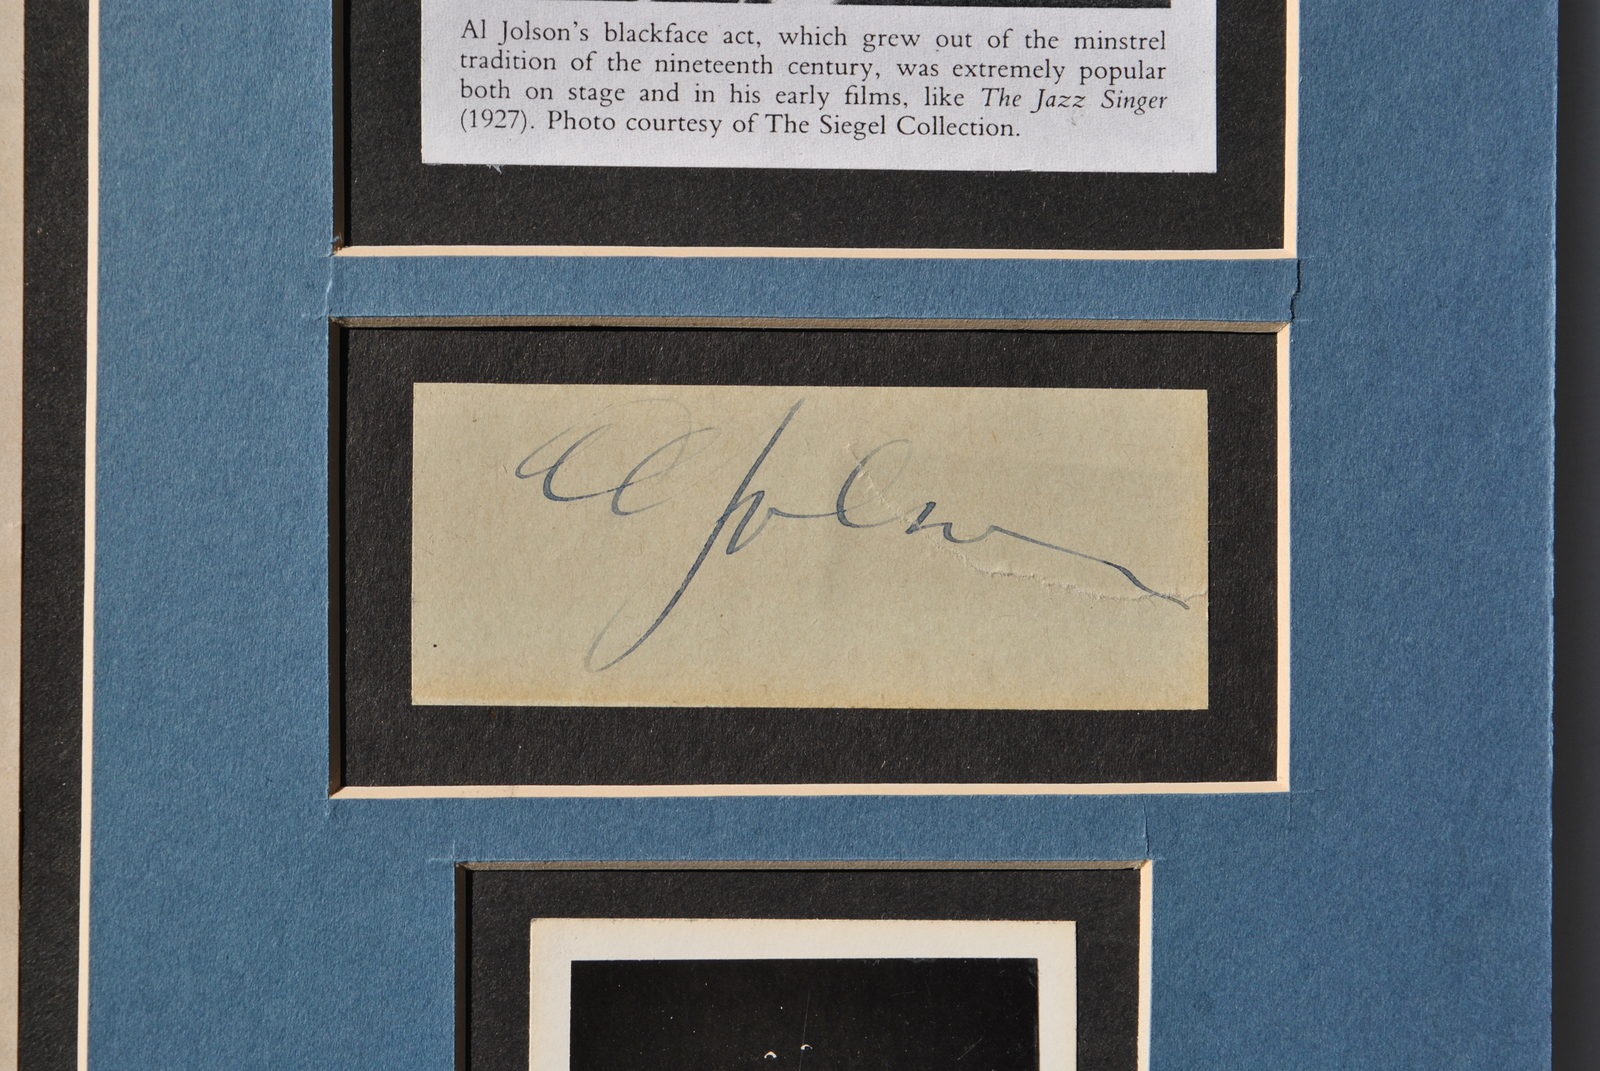 Al Jolson's blackface act, which grew out of the minstrel
tradition of the nineteenth century, was extremely popular
both on stage and in his early films, like The Jazz Singer
(1927). Photo courtesy of The Siegel Collection.
Al Jolson